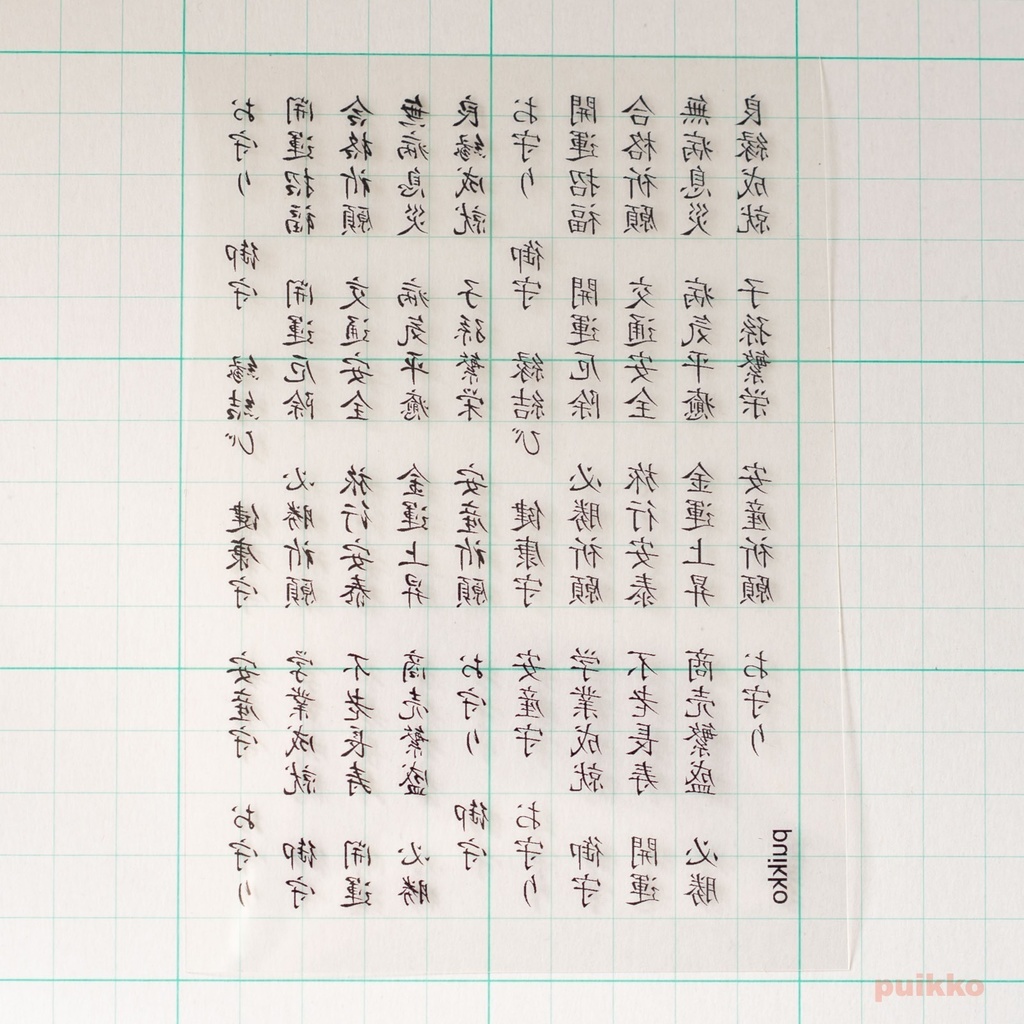 お守り 御守 縁結び 健康守 安産守 お守り
開運招福 開運厄除 必勝祈願 学業成就 御守
合格祈願 交通安全 旅行安泰 不老長寿 開運
無病息災 病気平癒 金運上昇 商売繁盛 必勝
良縁成就 子孫繁栄 安産祈願 お守り 御守
お守り 御守 縁結び 健康守 安産守 お守り
開運招福 開運厄除 必勝祈願 学業成就 御守
合格祈願 交通安全 旅行安泰 不老長寿 開運
無病息災 病気平癒 金運上昇 商売繁盛 必勝
良縁成就 子孫繁栄 安産祈願 お守り
puikko
puikko